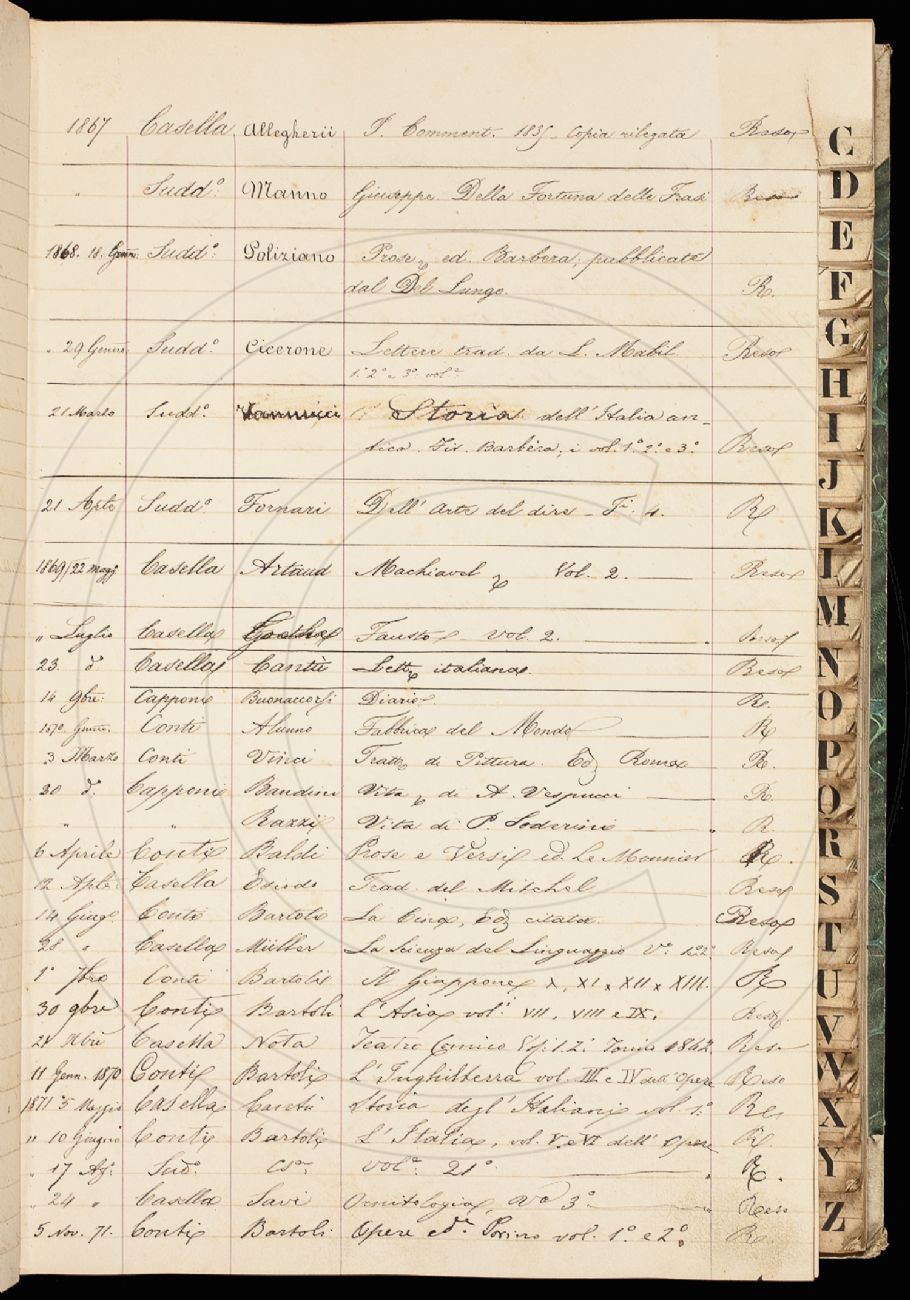 1867 Casella Allegherii P. Comment. 1835 - Copia rilegata Reso
" Sudd.º Manno Giuseppe Della Fortuna delle Frasi Reso
1868. 18. Genn. Sudd.º Poliziano Prose ed. Barbèra, pubblicate
dal Del Lungo. R.
" 29 Genn. Sudd.º Cicerone Lettere trad. da L. Mabil Reso
1.º 2º e 3.º vol.
21 Marzo Sudd.º Vannucci Storia dell'Italia an-
tica. Barbèra, i vol. 1.º 2.º e 3.º Reso
21 Aple Sudd.º Fornari Dell'Arte del dire - 4. R
1869/22 Magg Casella Artaud Machiavel Vol. 2. Reso
" Luglio Casella Goethe Fausto - vol. 2. Reso
23. dº Casella Cantù Lett italiana. Reso
14 9bre Capponi Buonaccorsi Diario. R.
1870 Genn. Conti Alunno Fabbrica del Mondo R
3 Marzo Conti Vinci Tratt di Pittura. Ed Roma R.
30 d. Capponi Bandini Vita di A. Vespucci R.
" " Razzi Vita di P. Soderini R
6 Aprile Conti Baldi Prose e Versi ed. Le Monnier R.
12 Aple Casella Esiodo Trad. del Mitchel Reso
14 Giug Conti Bartoli La Cina, Ed citata. Reso
28 " Casella Müller La Scienza del Linguaggio Vº 1.2.º Reso
1º 7bre Conti Bartoli Il Giappone X, XI, XII, XIII. R
30 9bre Conti Bartoli L'Asia vol. VII, VIII e IX. Reso
21 Xbre Casella Nota Teatro Comico Torino 1842 Reso
11 Genn. 1870 Conti Bartoli L'Inghilterra vol. III e IV dell'Opere Reso
1871 5 Maggio Casella Cantù Storia degl'Italiani vol. 1.º Res
" 10 Giugno Conti Bartoli L'Italia, vol. V. e VI dell'Opere R.
" 17 Ag. Sudº. vol.º 21º R.
" 24 " Casella Savi Ornitologia, 3º Reso
5 Nov. 71. Conti Bartoli Opere ed. Torino vol. 1.º e 2º. R.
C
D
E
F
G
H
I
J
K
L
M
N
O
P
Q
R
S
T
U
V
W
X
Y
Z